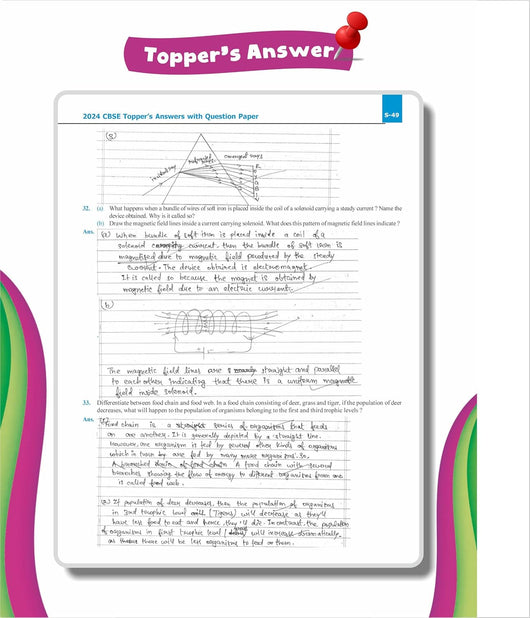 Topper's Answer
2024 CBSE Topper's Answers with Question Paper
S-49
(3)
incident ray
refracted rays
emergent rays
R
O
Y
G
B
I
V
32. (a) What happens when a bundle of wires of soft iron is placed inside the coil of a solenoid carrying a steady current ? Name the
device obtained. Why is it called so?
(b) Draw the magnetic field lines inside a current carrying solenoid. What does this pattern of magnetic field lines indicate ?
Ans.
(a) When bundle of soft iron is placed inside a coil of a
solenoid carrying current. then the bundle of soft iron is
magnetised due to magnetic field produced by the steady
current. The device obtained is electromagnet.
It is called so because the magnet is obtained by
magnetic field due to an electric current.
(b)
The magnetic field lines are straight and parallel
to each other indicating that there is a uniform magnetic
field inside solenoid.
33. Differentiate between food chain and food web. In a food chain consisting of deer, grass and tiger, if the population of deer
decreases, what will happen to the population of organisms belonging to the first and third trophic levels ?
Ans.
Food chain is a straight series of organisms that feeds
on one another. It is generally depicted by a straight line.
However, one organism is fed by several other kinds of organisms
which in turn are fed by many more organisms. So,
A branched chain of food chain A food chain with several
branches showing the flow of energy to different organisms from one
is called food web.
If population of deer decreases, then the population of organisms
in 3rd trophic level will (Tigers) will decrease as they'll
have less food to eat and hence they'll die. In contrast, the population
of organisms in first trophic level will increase dramatically
as there will be less organisms to feed on them.